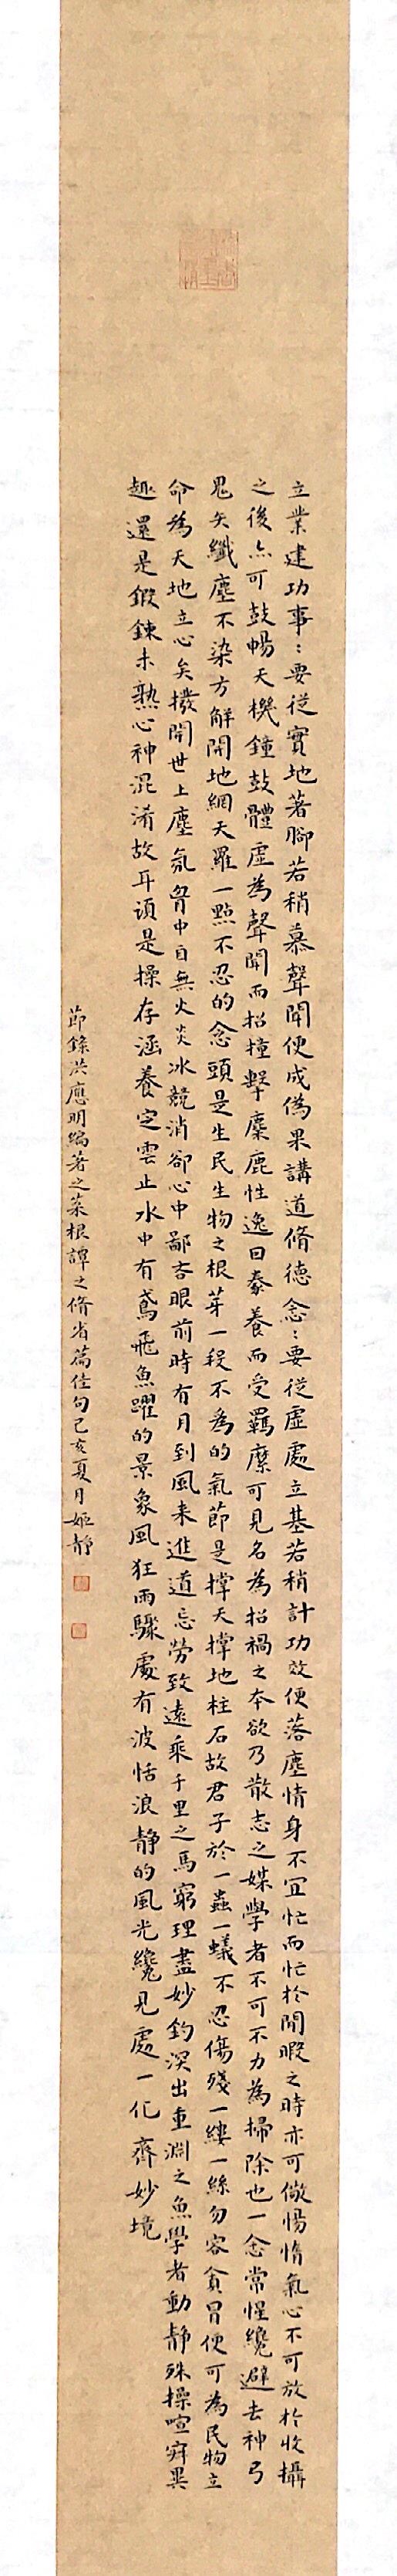 立業建功事〻要從實地著腳若稍慕聲聞便成偽果講道脩德念〻要從虛處立基若稍計功效便落塵情身不宜忙而忙於閒暇之時亦可儆惕惰氣心不可放於收攝
之後亦可鼓暢天機鐘鼓體虛為聲聞而招撞擊麋鹿性逸因豢養而受羈縻可見名為招禍之本欲乃散志之媒學者不可不力為掃除也一念常惺纔避去神弓
鬼矢纖塵不染方解開地網天羅一點不忍的念頭是生民生物之根芽一段不為的氣節是撐天撐地柱石故君子於一蟲一蟻不忍傷殘一縷一絲勿容貪冒便可為民物立
命為天地立心矣撥開世上塵氛胷中自無火炎冰競消卻心中鄙吝眼前時有月到風來進道忘勞致遠乘千里之馬窮理盡妙釣深出重淵之魚學者動靜殊操喧寂異
趣還是鍛鍊未熟心神混淆故耳須是操存涵養定雲止水中有鳶飛魚躍的景象風狂雨驟處有波恬浪靜的風光纔見處一化齊妙境
節錄洪應明編著之菜根譚之脩省篇佳句己亥夏月姬靜